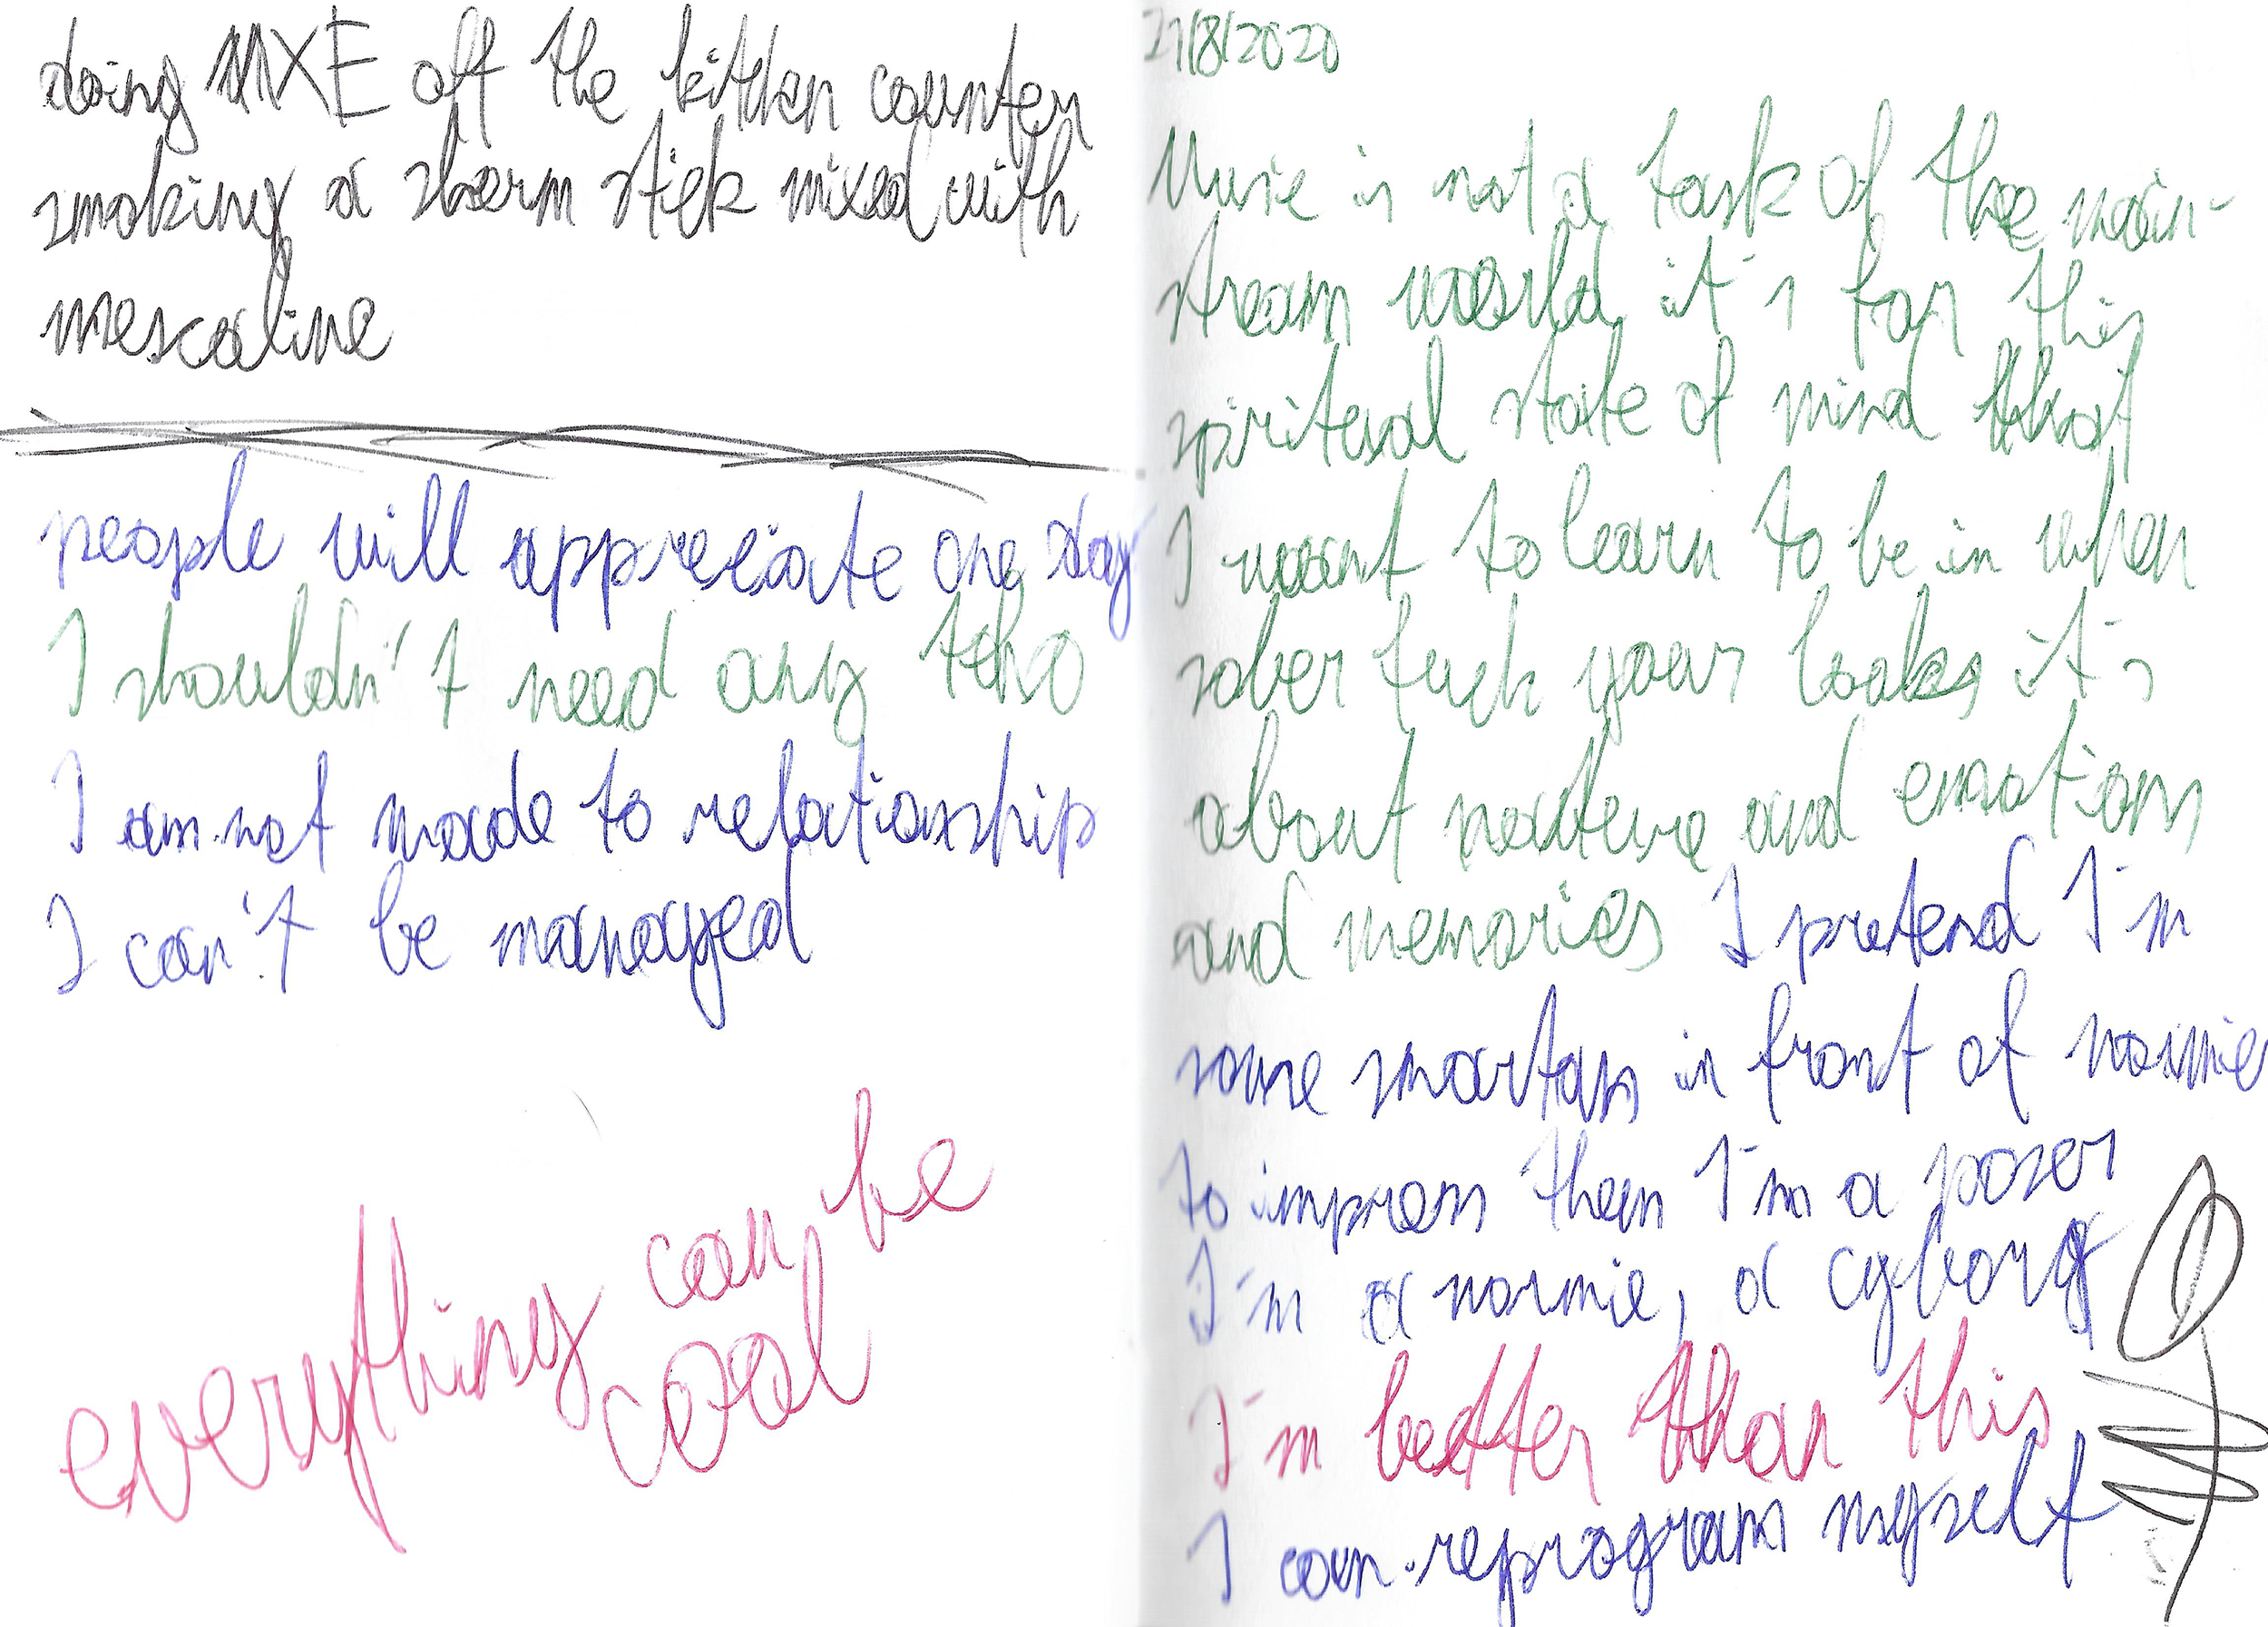 doing MXE off the kitchen counter
smoking a sherm stick mixed with
mescaline
people will appreciate one day
I shouldn't need any tho
I am not made to relationship
I can't be managed
everything can be
cool
21/8/2020
Music is not a task of the main-
stream world it's for this
spiritual state of mind that
I want to learn to be in when
sober fuck your looks it's
about nature and emotions
and memories I pretend I'm
some smartass in front of normies
to impress them I'm a poser
I'm a normie, a cyborg
I'm better than this
I can reprogram myself